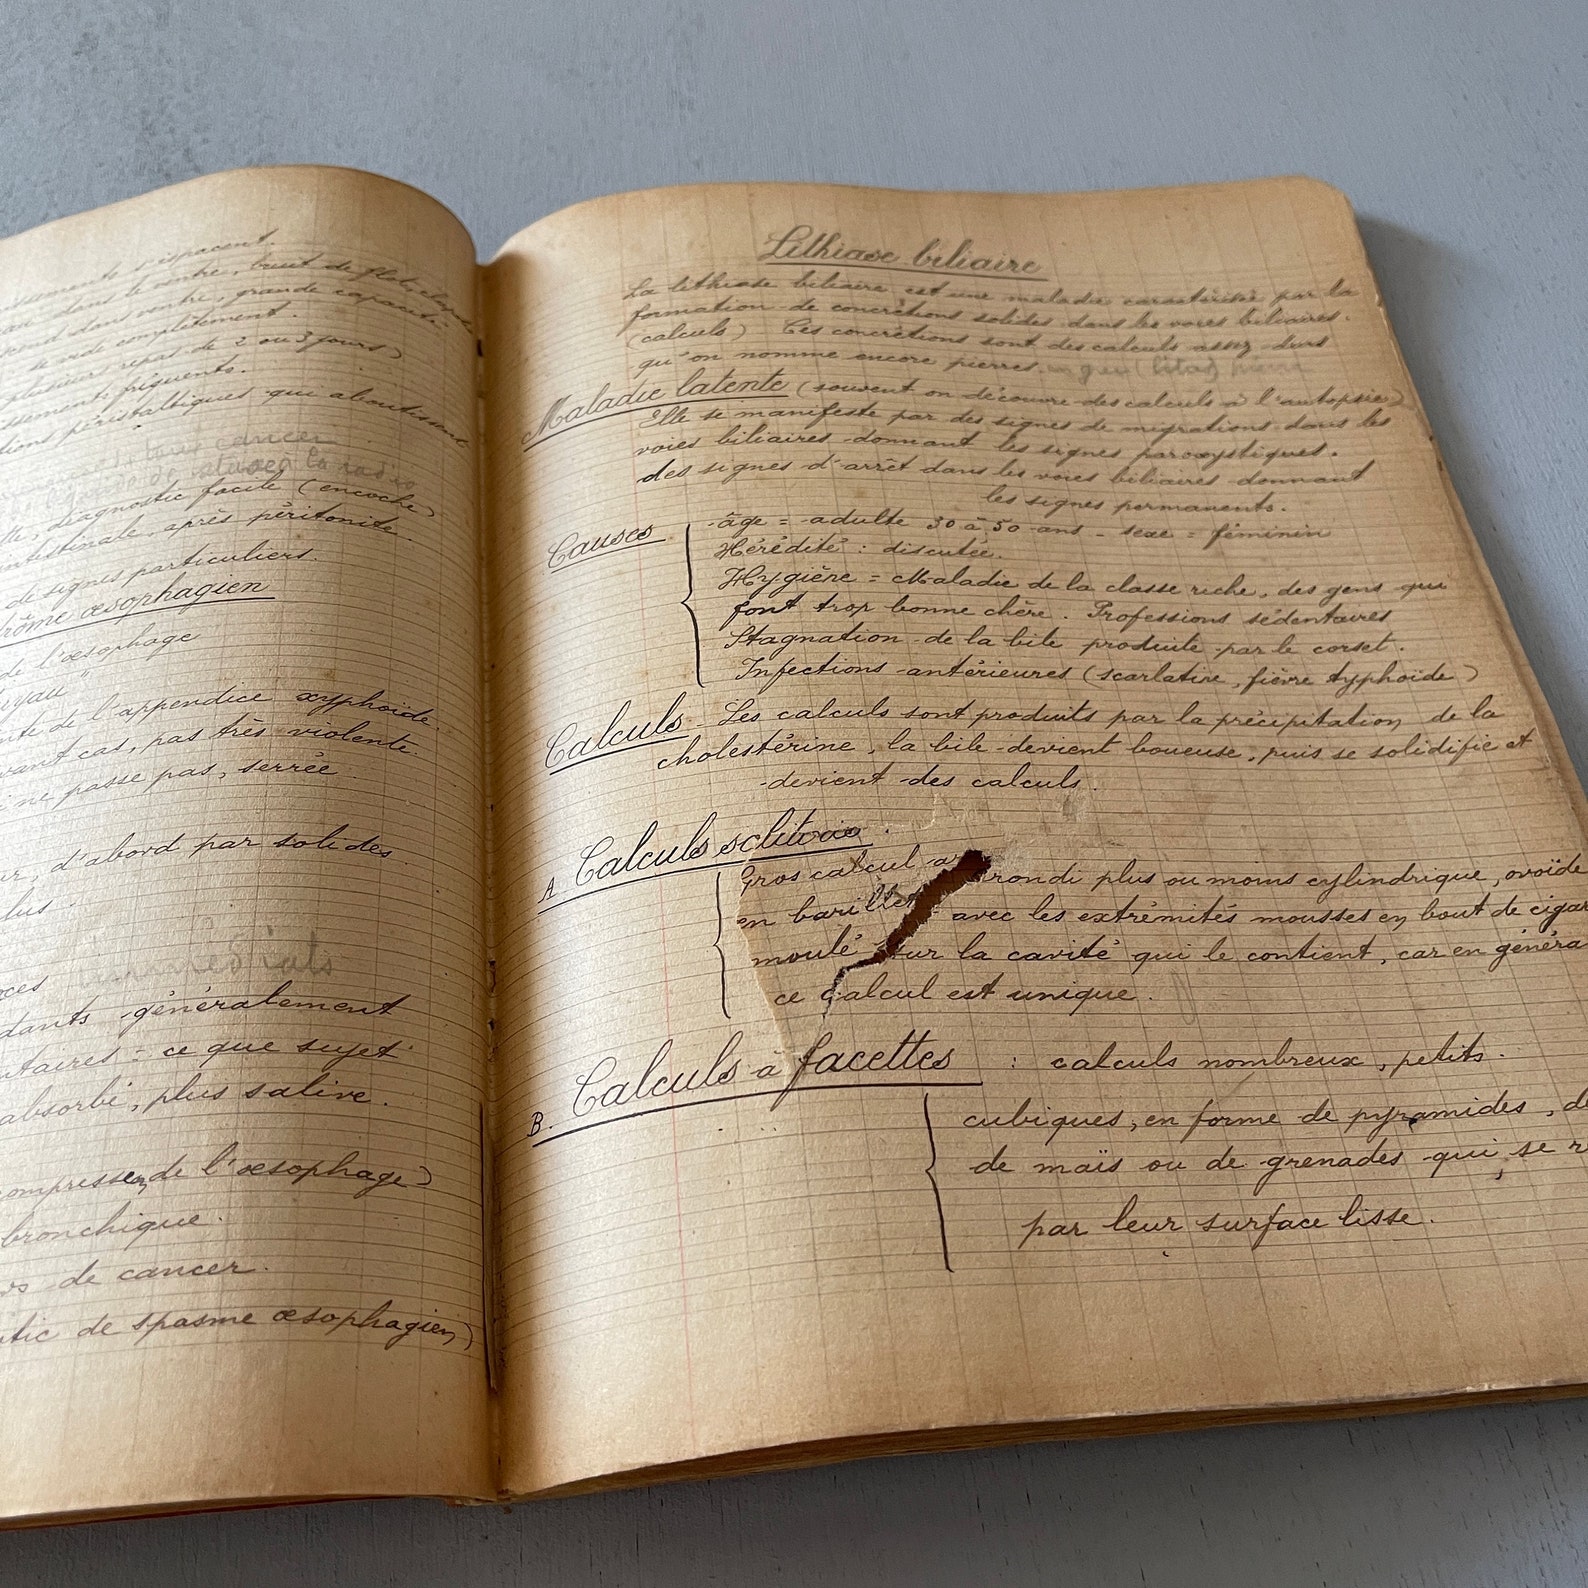 s'espacent.
dans le ventre, bruit de flot, clapote
dans ventre, grande capacité.
se vide complètement.
plusieurs repas de 2 ou 3 jours)
fréquents.
péristaltiques qui aboutissent
cancer
la radio
diagnostic facile (encoche)
intestinale, après péritonite.
de signes particuliers.
œsophagien
de l'œsophage
de l'appendice xyphoïde.
cas, pas très violente.
ne passe pas, serrée.
d'abord par solides
généralement
= ce que sujet
absorbé, plus salive.
de l'œsophage)
bronchique.
de cancer.
de spasme œsophagien)
Lithiase biliaire
La lithiase biliaire est une maladie caractérisée par la
formation de concrétions solides dans les voies biliaires.
(calculs) Ces concrétions sont des calculs assez durs
qu'on nomme encore pierres.
Maladie latente (souvent on découvre des calculs à l'autopsie)
Elle se manifeste par des signes de migrations dans les
voies biliaires donnant les signes paroxystiques.
des signes d'arrêt dans les voies biliaires donnant
les signes permanents.
Causes - âge = adulte 30 à 50 ans - sexe = féminin
Hérédité : discutée.
Hygiène = Maladie de la classe riche, des gens qui
font trop bonne chère. Professions sédentaires
Stagnation de la bile produite par le corset.
Infections antérieures (scarlatine, fièvre typhoïde)
Calculs - Les calculs sont produits par la précipitation de la
cholestérine, la bile devient boueuse, puis se solidifie et
devient des calculs.
A Calculs
Gros calcul arrondi plus ou moins cylindrique, ovoïde
en barillet avec les extrémités mousses en bout de cigar
moulé sur la cavité qui le contient, car en généra
ce calcul est unique.
B. Calculs à facettes : calculs nombreux, petits.
cubiques, en forme de pyramides, de
de maïs ou de grenades qui se r
par leur surface lisse.